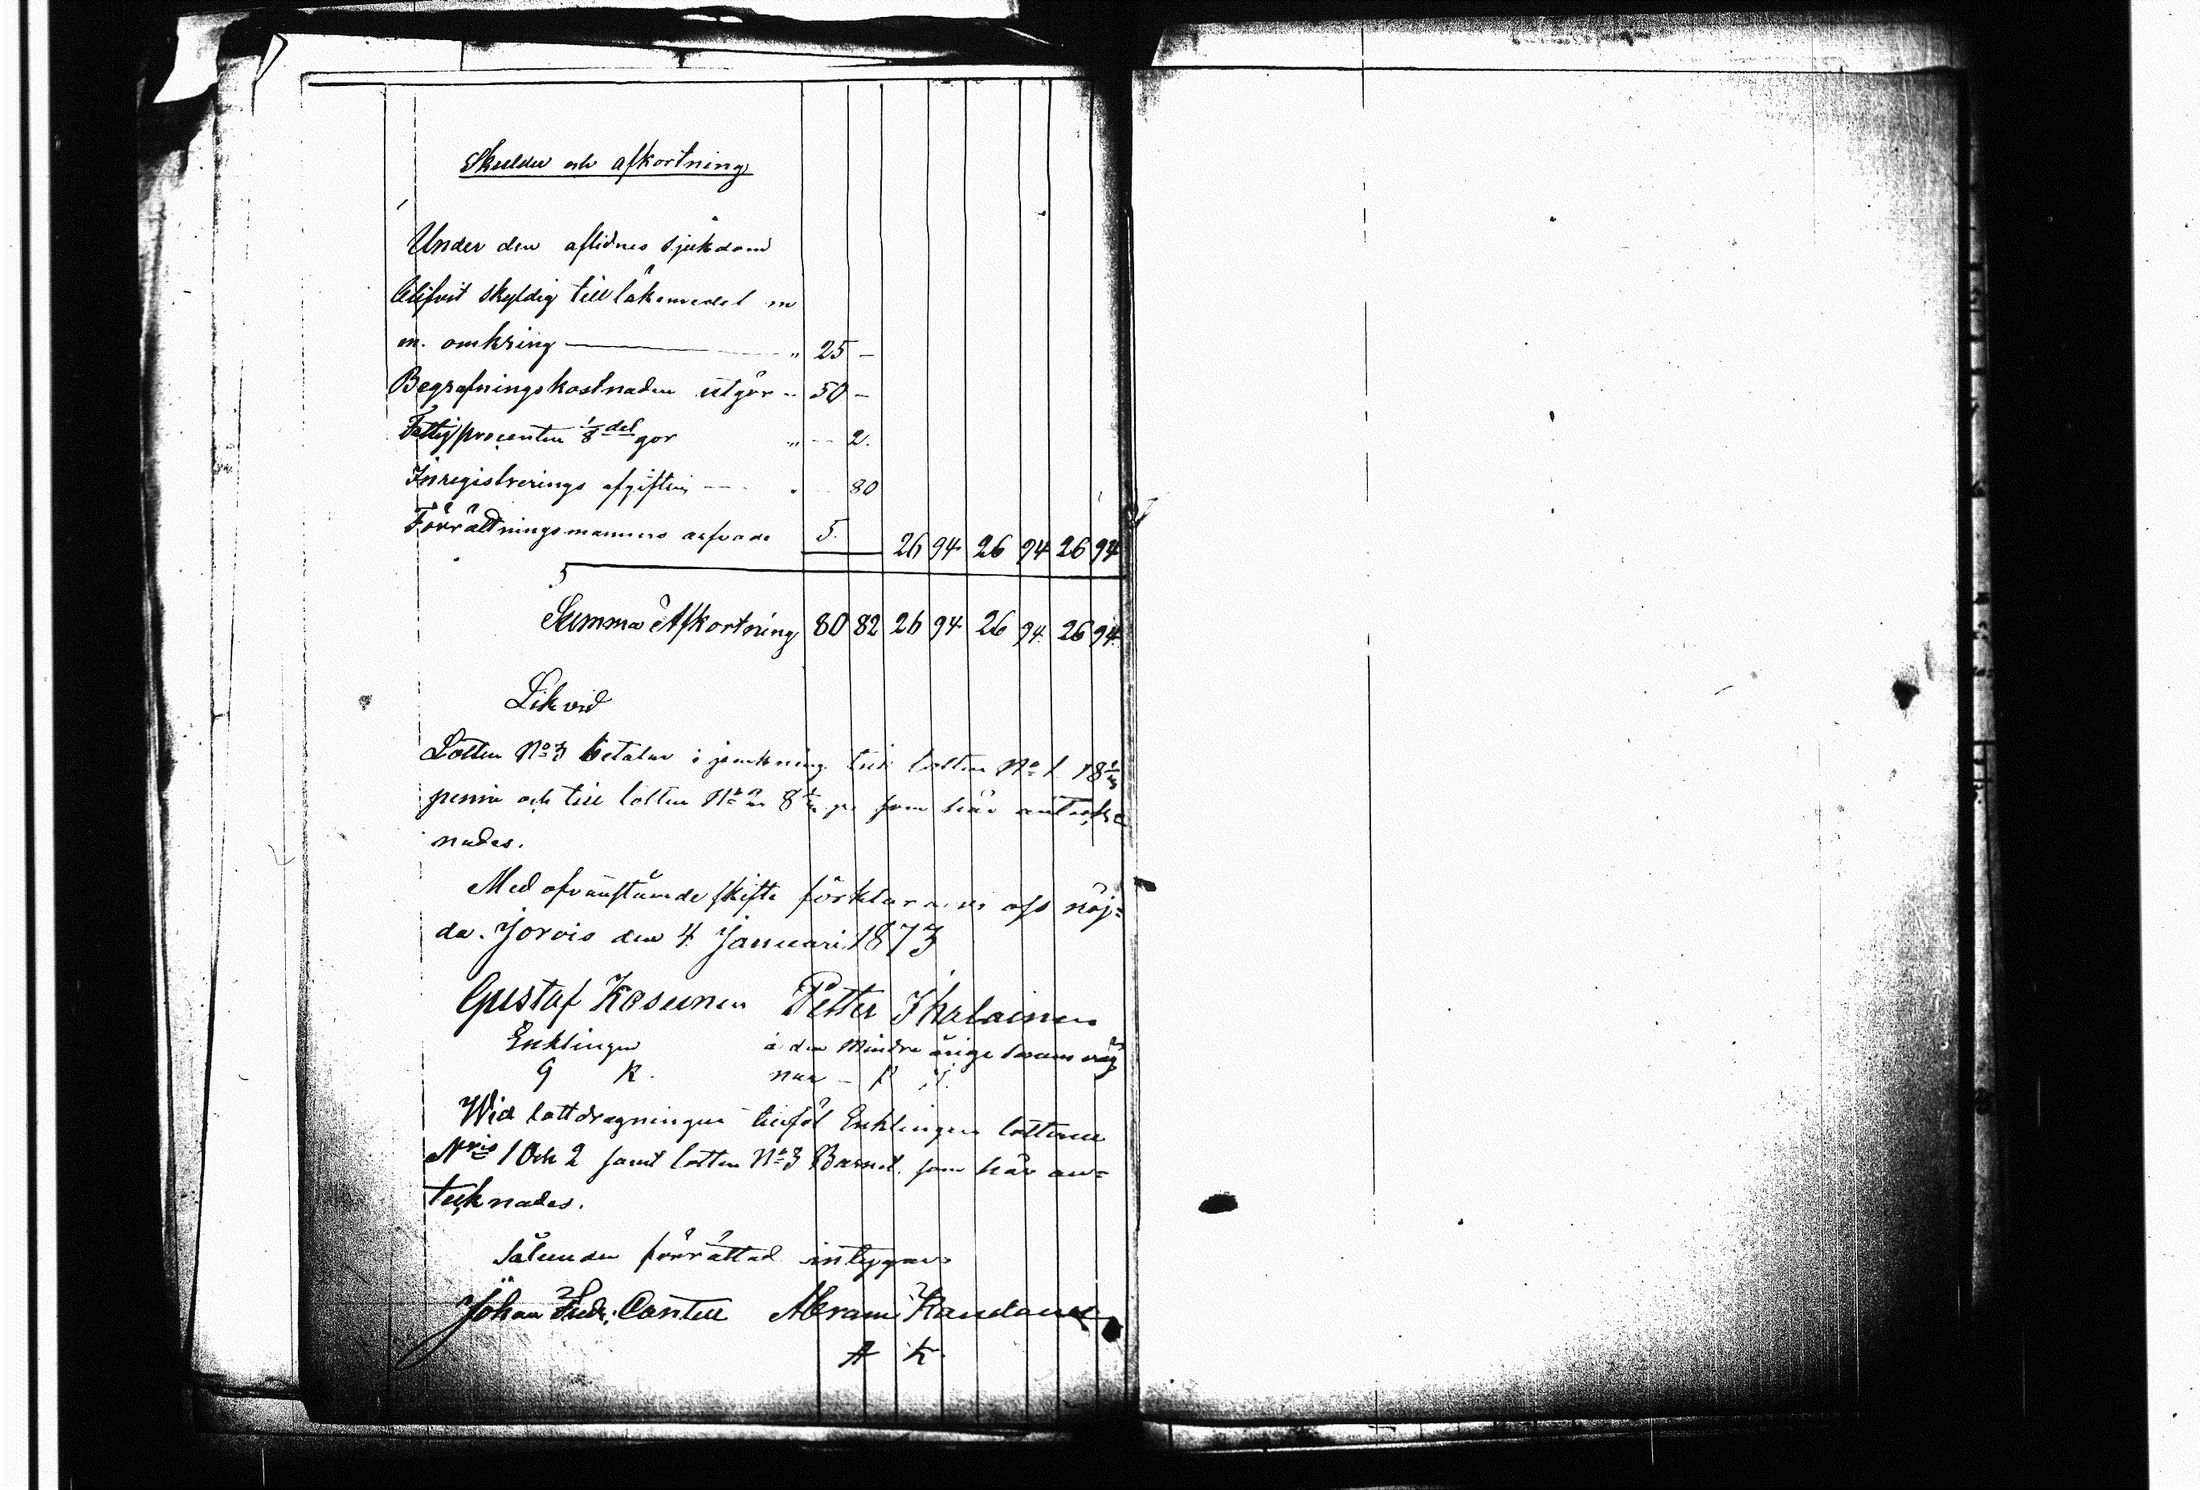 Skulder och afkortning
Under den aflidnes sjukdom
blifvit skyldig till läkemedel m
m. omkring — " 25 —
Begrafningskostnaden utgör " 50 —
Fattigprocenten 1/8 del gör " — 2.
Inregistrerings afgiften — " — 80
Förrättningsmannens arfvode 5. 26 94 26 94 26 94
Summa Afkortning 80 82 26 94 26 94 26 94
Likvid
Lotten No 3 betalar i jemkning till lotten No 1 18
penni och till lotten No 8 pi som här anteck
nades.
Med ofvanstående skifte förklara vi oss nöj=
da. Jorois den 4 Januari 1873
Gustaf Kosunen Petter Ihalainen
Enklingen å den Mindre åriga barnens väg
G K. nar — P I.
Wid lottdragningen tillföl Enklingen lotterne
Nris 1 Och 2 samt lotten No 3 Barnet. som här an=
tecknades.
Sålunda förrättad intygar
Johan Fredr. Cantell Abram
A K.